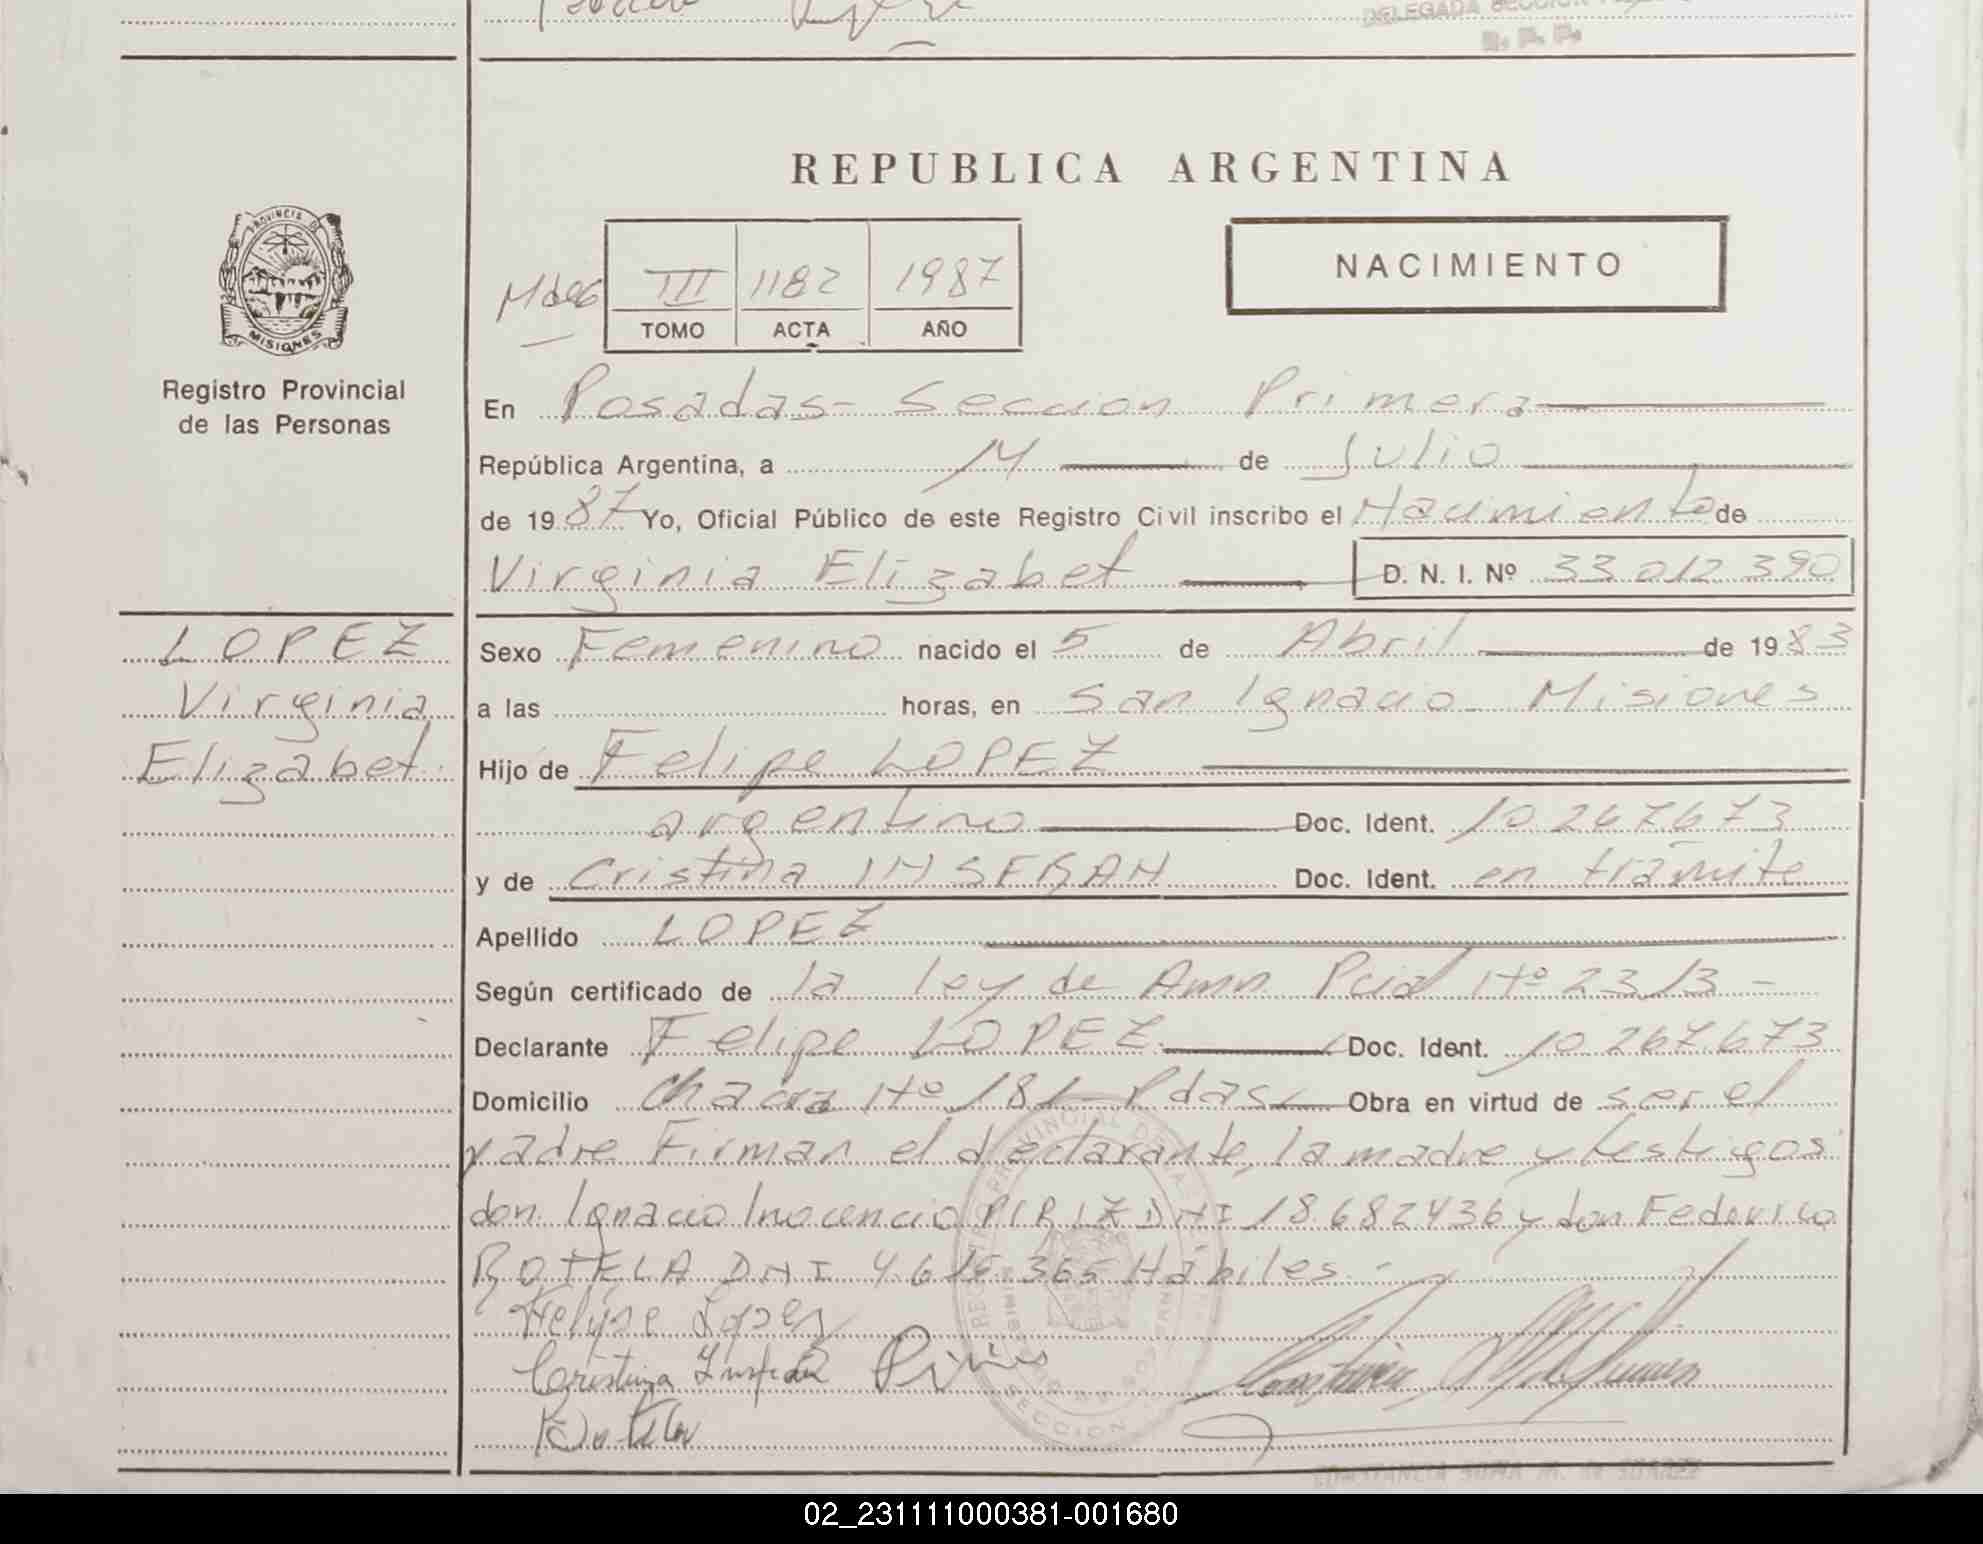 DELEGADA SECCION
R. P. P.
REPUBLICA ARGENTINA
PROVINCIA DE
MISIONES
Registro Provincial
de las Personas
III 1182 1987
TOMO ACTA AÑO
NACIMIENTO
En Posadas - Sección Primera
República Argentina, a 14 de Julio
de 1987 Yo, Oficial Público de este Registro Civil inscribo el Nacimiento de
Virginia Elizabet D. N. I. Nº 33 012 390
LOPEZ
Virginia
Elizabet
Sexo Femenino nacido el 5 de Abril de 1983
a las horas, en San Ignacio - Misiones
Hijo de Felipe LOPEZ
argentino Doc. Ident. 10 267673
y de Cristina INSFRAN Doc. Ident. en trámite
Apellido LOPEZ
Según certificado de la ley de Amn. Pcial Nº 2313 -
Declarante Felipe LOPEZ Doc. Ident. 10 267673
Domicilio Chacra Nº 181 - Pdas Obra en virtud de ser el
padre Firman el declarante, la madre y testigos
don Ignacio Inocencio PIRIZ DNI 18682436 y don Federico
ROTELA DNI 4.615.365 Hábiles. -
Felipe Lopez
Cristina Insfran Piris
Rotela
02_231111000381-001680